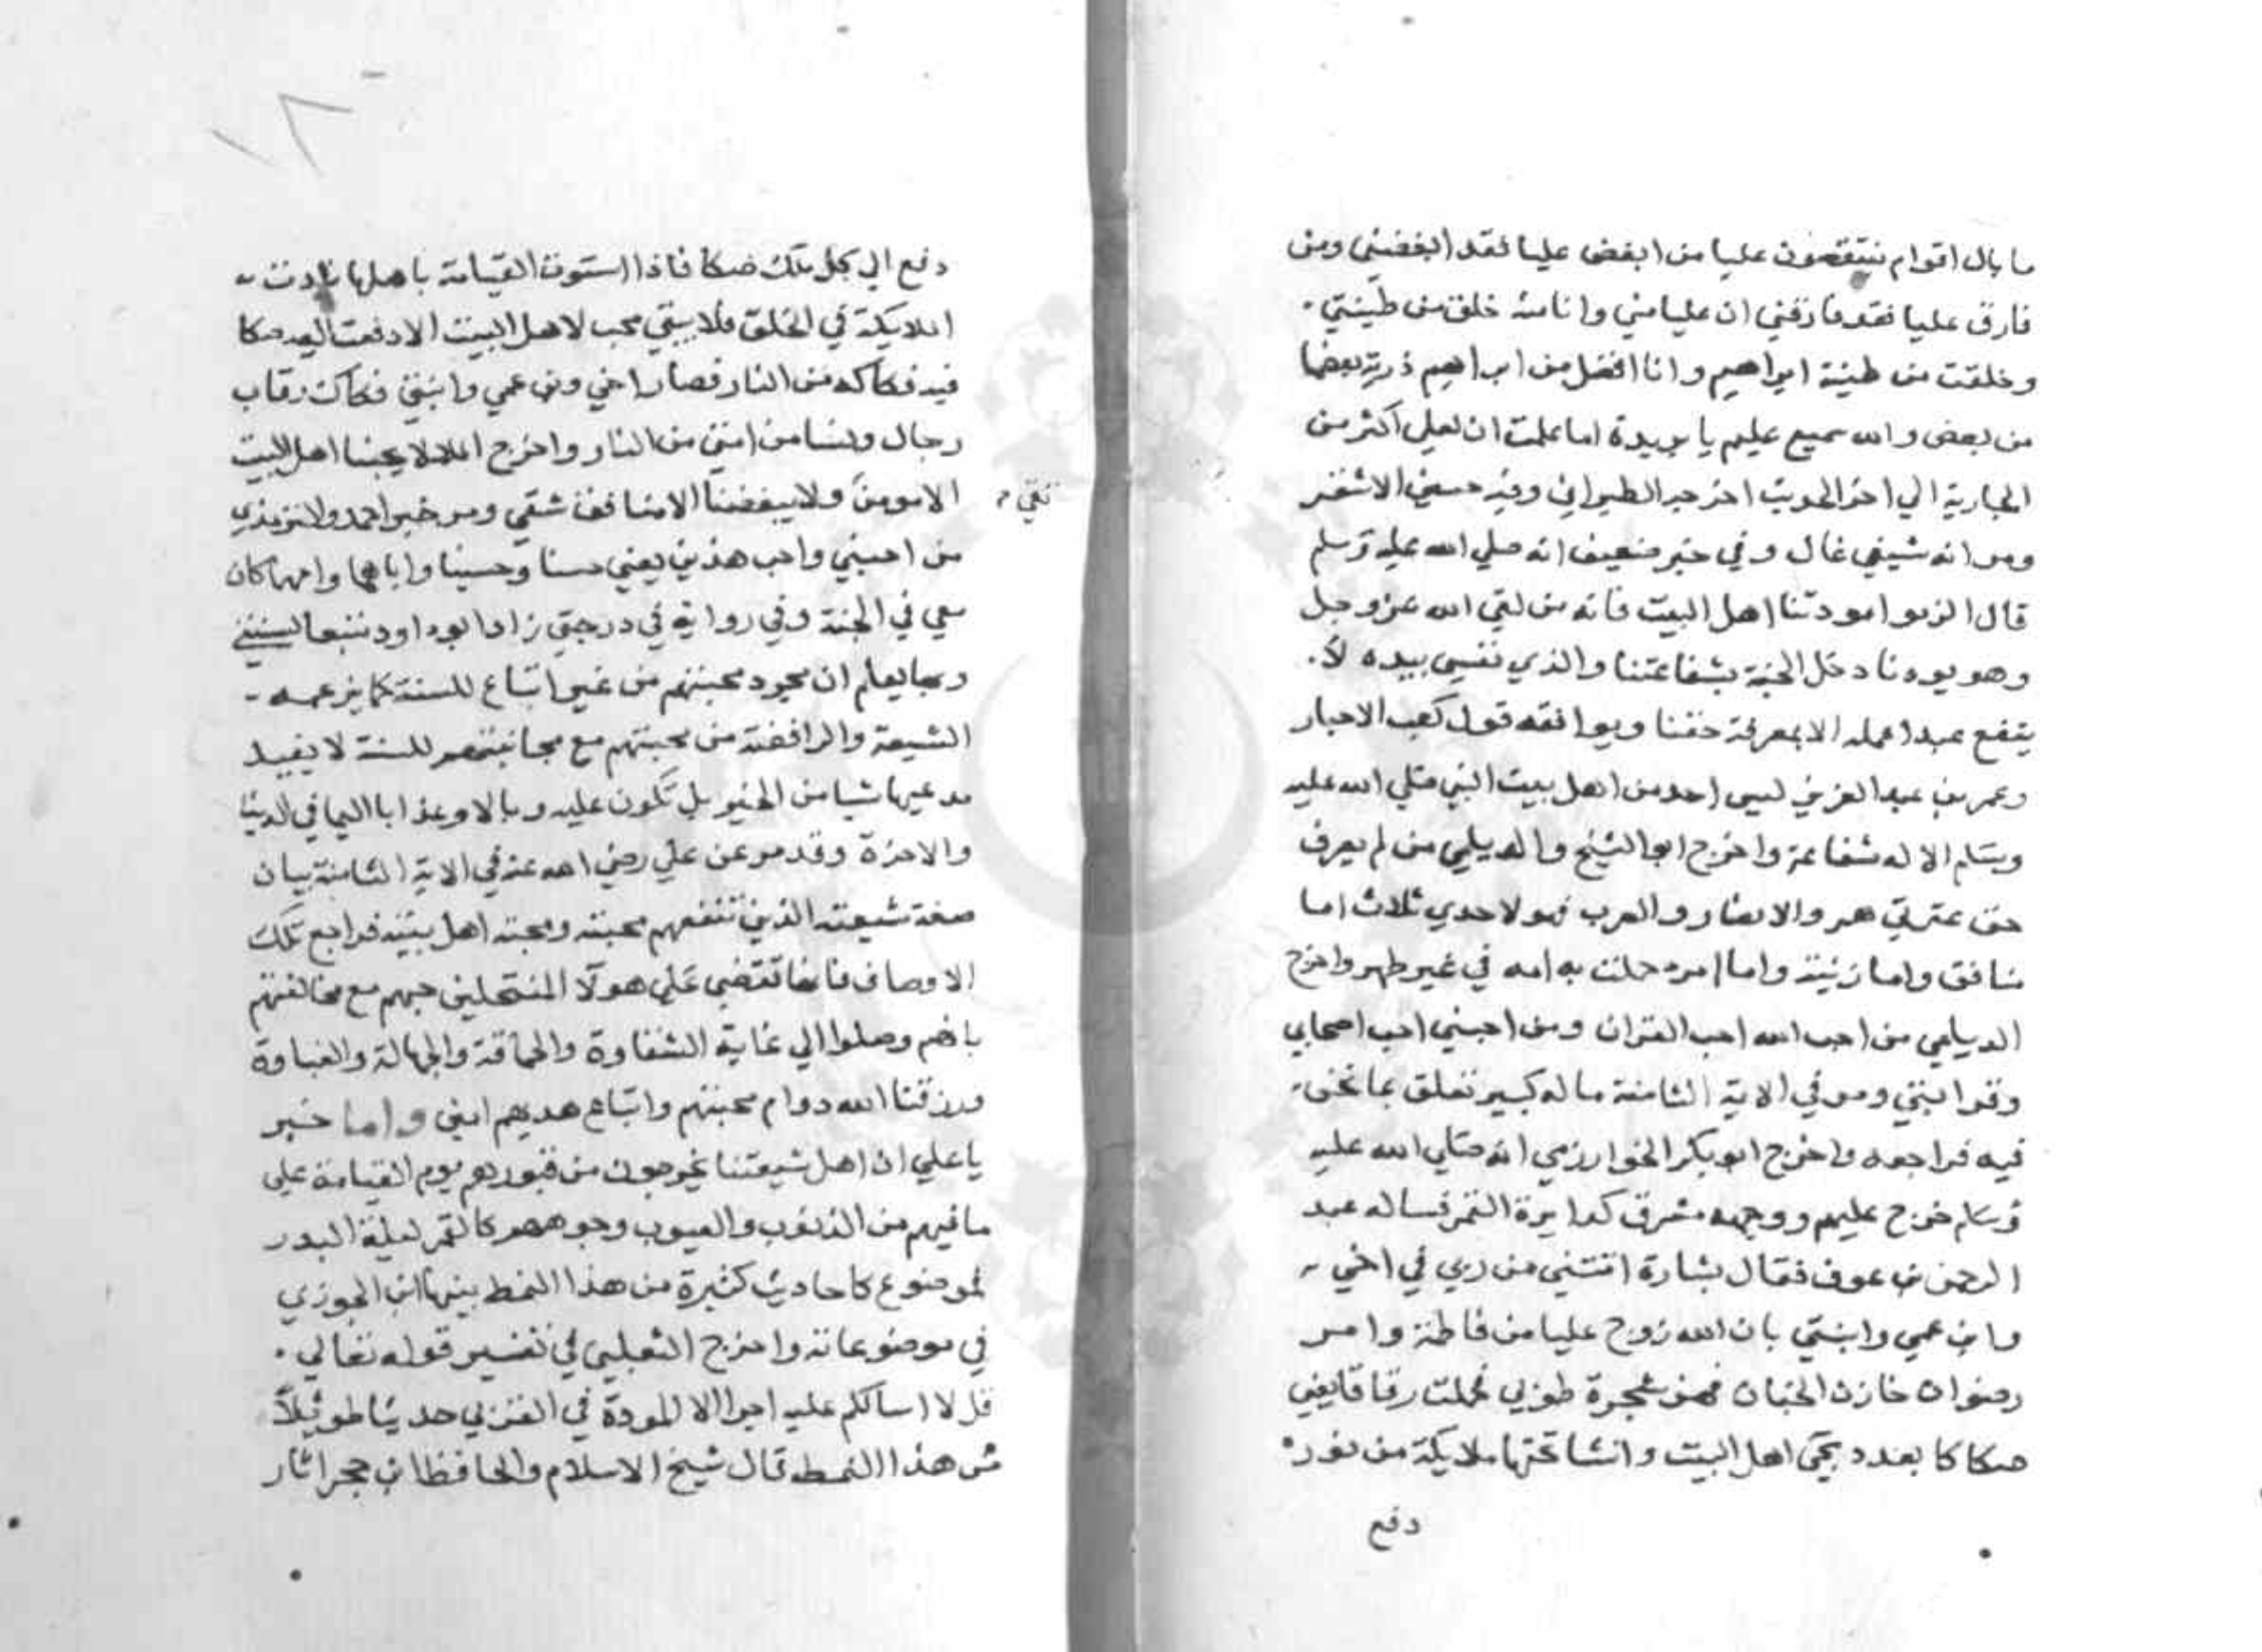 ما بال اقوام ينتقصون عليا من ابغض عليا فقد ابغضني ومن
فارق عليا فقد فارقني ان عليا مني وانا منه خلق من طينتي
وخلقت من طينة ابراهيم وانا افضل من ابراهيم ذرية بعضها
من بعض والله سميع عليم يا بريدة اما علمت ان لعلي اكثر من
الجارية الي اخر الحديث اخرجه الطبراني وفيه حسين الاشقر
ومر انه شيعي غال وفي خبر ضعيف انه صلي الله عليه وسلم
قال الزموا مودتنا اهل البيت فانه من لقي الله عز وجل
وهو يودنا دخل الجنة بشفاعتنا والذي نفسي بيده لا
ينفع عبدا عمله الا بمعرفة حقنا ويوافقه قول كعب الاحبار
وعمر بن عبد العزيز ليس احد من اهل بيت النبي صلي الله عليه
وسلم الا له شفاعة واخرج ابو الشيخ والديلمي من لم يعرف
حق عترتي هم والانصار والعرب فهو لاحدي ثلاث اما
منافق واما زنية واما امرء حملت به امه في غير طهر واخرج
الديلمي من احب الله احب القران ومن احبني احب اصحابي
وقرابتي ومر في الاية الثامنة ما له كبير تعلق بما نحن
فيه فراجعه واخرج ابو بكر الخوارزمي انه صلي الله عليه
وسلم خرج عليهم ووجهه مشرق كدايرة القمر فساله عبد
الرحمن بن عوف فقال بشارة اتتني من ربي في اخي
وابن عمي وابنتي بان الله زوج عليا من فاطمة وامر
رضوان خازن الجنان فهز شجرة طوبي فحملت رقاقا يعني
صكاكا بعدد محبي اهل البيت وانشا تحتها ملايكة من نور
دفع
دفع الي كل ملك صكا فاذا استوت القيامة باهلها نادت
الملايكة في الخلق فلا يبقي محب لاهل البيت الا دفعت اليه صكا
فيه فكاكه من النار فصار اخي وبن عمي وابنتي فكاك رقاب
رجال ونسا من امتي من النار واخرج الملا لا يحبنا اهل البيت
الا مومن ولا يبغضنا الا منافق شقي ومر خبر احمد والترمذي
تقي
من احبني واحب هذين يعني حسنا وحسينا واباهما وامهما كان
معي في الجنة وفي رواية في درجتي زاد ابو داود متبعا لسنتي
وبها يعلم ان مجرد محبتهم من غير اتباع للسنة كما يزعمه
الشيعة والرافضة من محبتهم مع مجانبتهم للسنة لا يفيد
مدعيها شيا من الخير بل تكون عليه وبالا وعذابا اليما في الدنيا
والاخرة وقد مر عن علي رضي الله عنه في الاية الثامنة بيان
صفة شيعته الذين تنفعهم محبته ومحبة اهل بيته فراجع تلك
الاوصاف فانها تقضي علي هولا المنتحلين حبهم مع مخالفتهم
بانهم وصلوا الي غاية الشقاوة والحماقة والجهالة والغباوة
ورزقنا الله دوام محبتهم واتباع هديهم امين واما خبر
يا علي ان اهل شيعتنا يخرجون من قبورهم يوم القيامة علي
ما فيهم من الذنوب والعيوب وجوههم كالقمر ليلة البدر
فموضوع كاحاديث كثيرة من هذا النمط بينها ابن الجوزي
في موضوعاته واخرج الثعلبي في تفسير قوله تعالي
قل لا اسالكم عليه اجرا الا المودة في القربي حديثا طويلا
من هذا النمط قال شيخ الاسلام والحافظ ابن حجر اثار